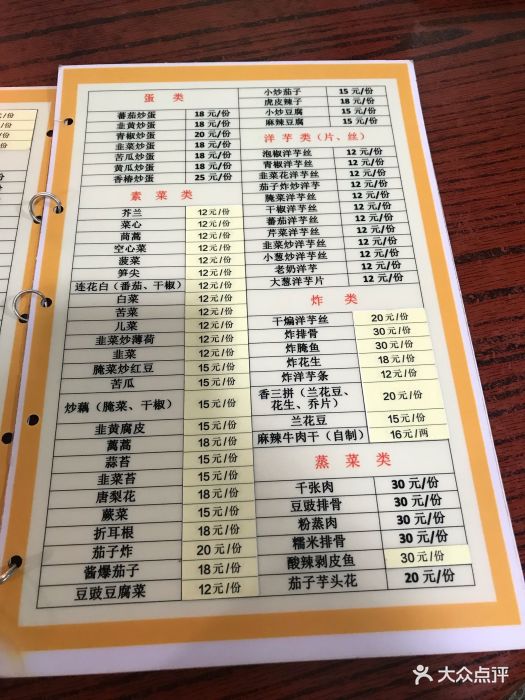 蛋 类
番茄炒蛋 18 元/份
韭黄炒蛋 18 元/份
青椒炒蛋 20 元/份
韭菜炒蛋 18 元/份
苦瓜炒蛋 18 元/份
黄瓜炒蛋 18 元/份
香椿炒蛋 25 元/份
素 菜 类
芥兰 12元/份
菜心 12元/份
茼蒿 12元/份
空心菜 12元/份
菠菜 12元/份
笋尖 12元/份
连花白（番茄、干椒） 12元/份
白菜 12元/份
苦菜 12元/份
儿菜 12元/份
韭菜炒薄荷 12元/份
韭菜 12元/份
腌菜炒红豆 15元/份
苦瓜 15元/份
炒藕（腌菜、干椒） 15元/份
韭黄腐皮 15元/份
蒿蒿 18元/份
蒜苔 15元/份
韭菜苔 15元/份
唐梨花 18元/份
蕨菜 15元/份
折耳根 18元/份
茄子炸 20元/份
酱爆茄子 18元/份
豆豉豆腐菜 12元/份
小炒茄子 15 元/份
虎皮辣子 18 元/份
小炒豆腐 15 元/份
麻辣豆腐 15 元/份
洋芋类（片、丝）
泡椒洋芋丝 12 元/份
青椒洋芋丝 12 元/份
韭菜花洋芋丝 12 元/份
茄子炸炒洋芋 12 元/份
腌菜洋芋丝 12 元/份
干椒洋芋丝 12 元/份
番茄洋芋丝 12 元/份
芹菜洋芋丝 12 元/份
韭菜炒洋芋丝 12 元/份
小葱炒洋芋丝 12 元/份
老奶洋芋 12 元/份
大葱洋芋片 12 元/份
炸 类
干煸洋芋丝 20元/份
炸排骨 30元/份
炸腌鱼 30元/份
炸花生 18元/份
炸洋芋条 12元/份
香三拼（兰花豆、
花生、乔片） 20元/份
兰花豆 15元/份
麻辣牛肉干（自制） 16元/两
蒸 菜 类
千张肉 30 元/份
豆豉排骨 30 元/份
粉蒸肉 30 元/份
糯米排骨 30 元/份
酸辣剥皮鱼 30 元/份
茄子芋头花 20 元/份
大众点评